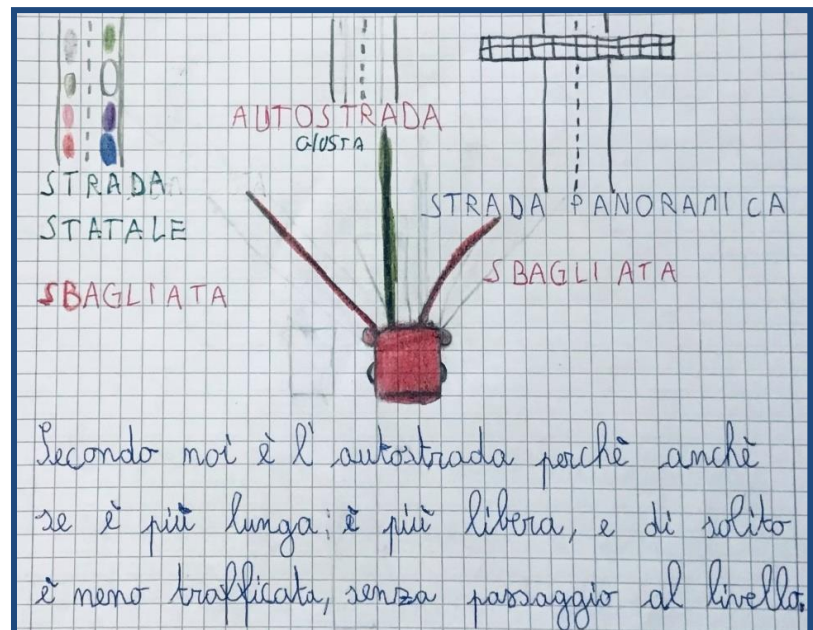 AUTOSTRADA
GIUSTA
STRADA
STATALE
SBAGLIATA
STRADA PANORAMICA
SBAGLIATA
Secondo noi è l'autostrada perchè anchè
se è più lunga; è più libera, e di solito
è meno trafficata, senza passaggio al livello.